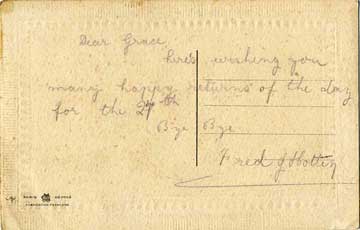 Dear Grace,
here's wishing you
many happy returns of the day
for the 27th
Bye Bye
Fred J
PARIS